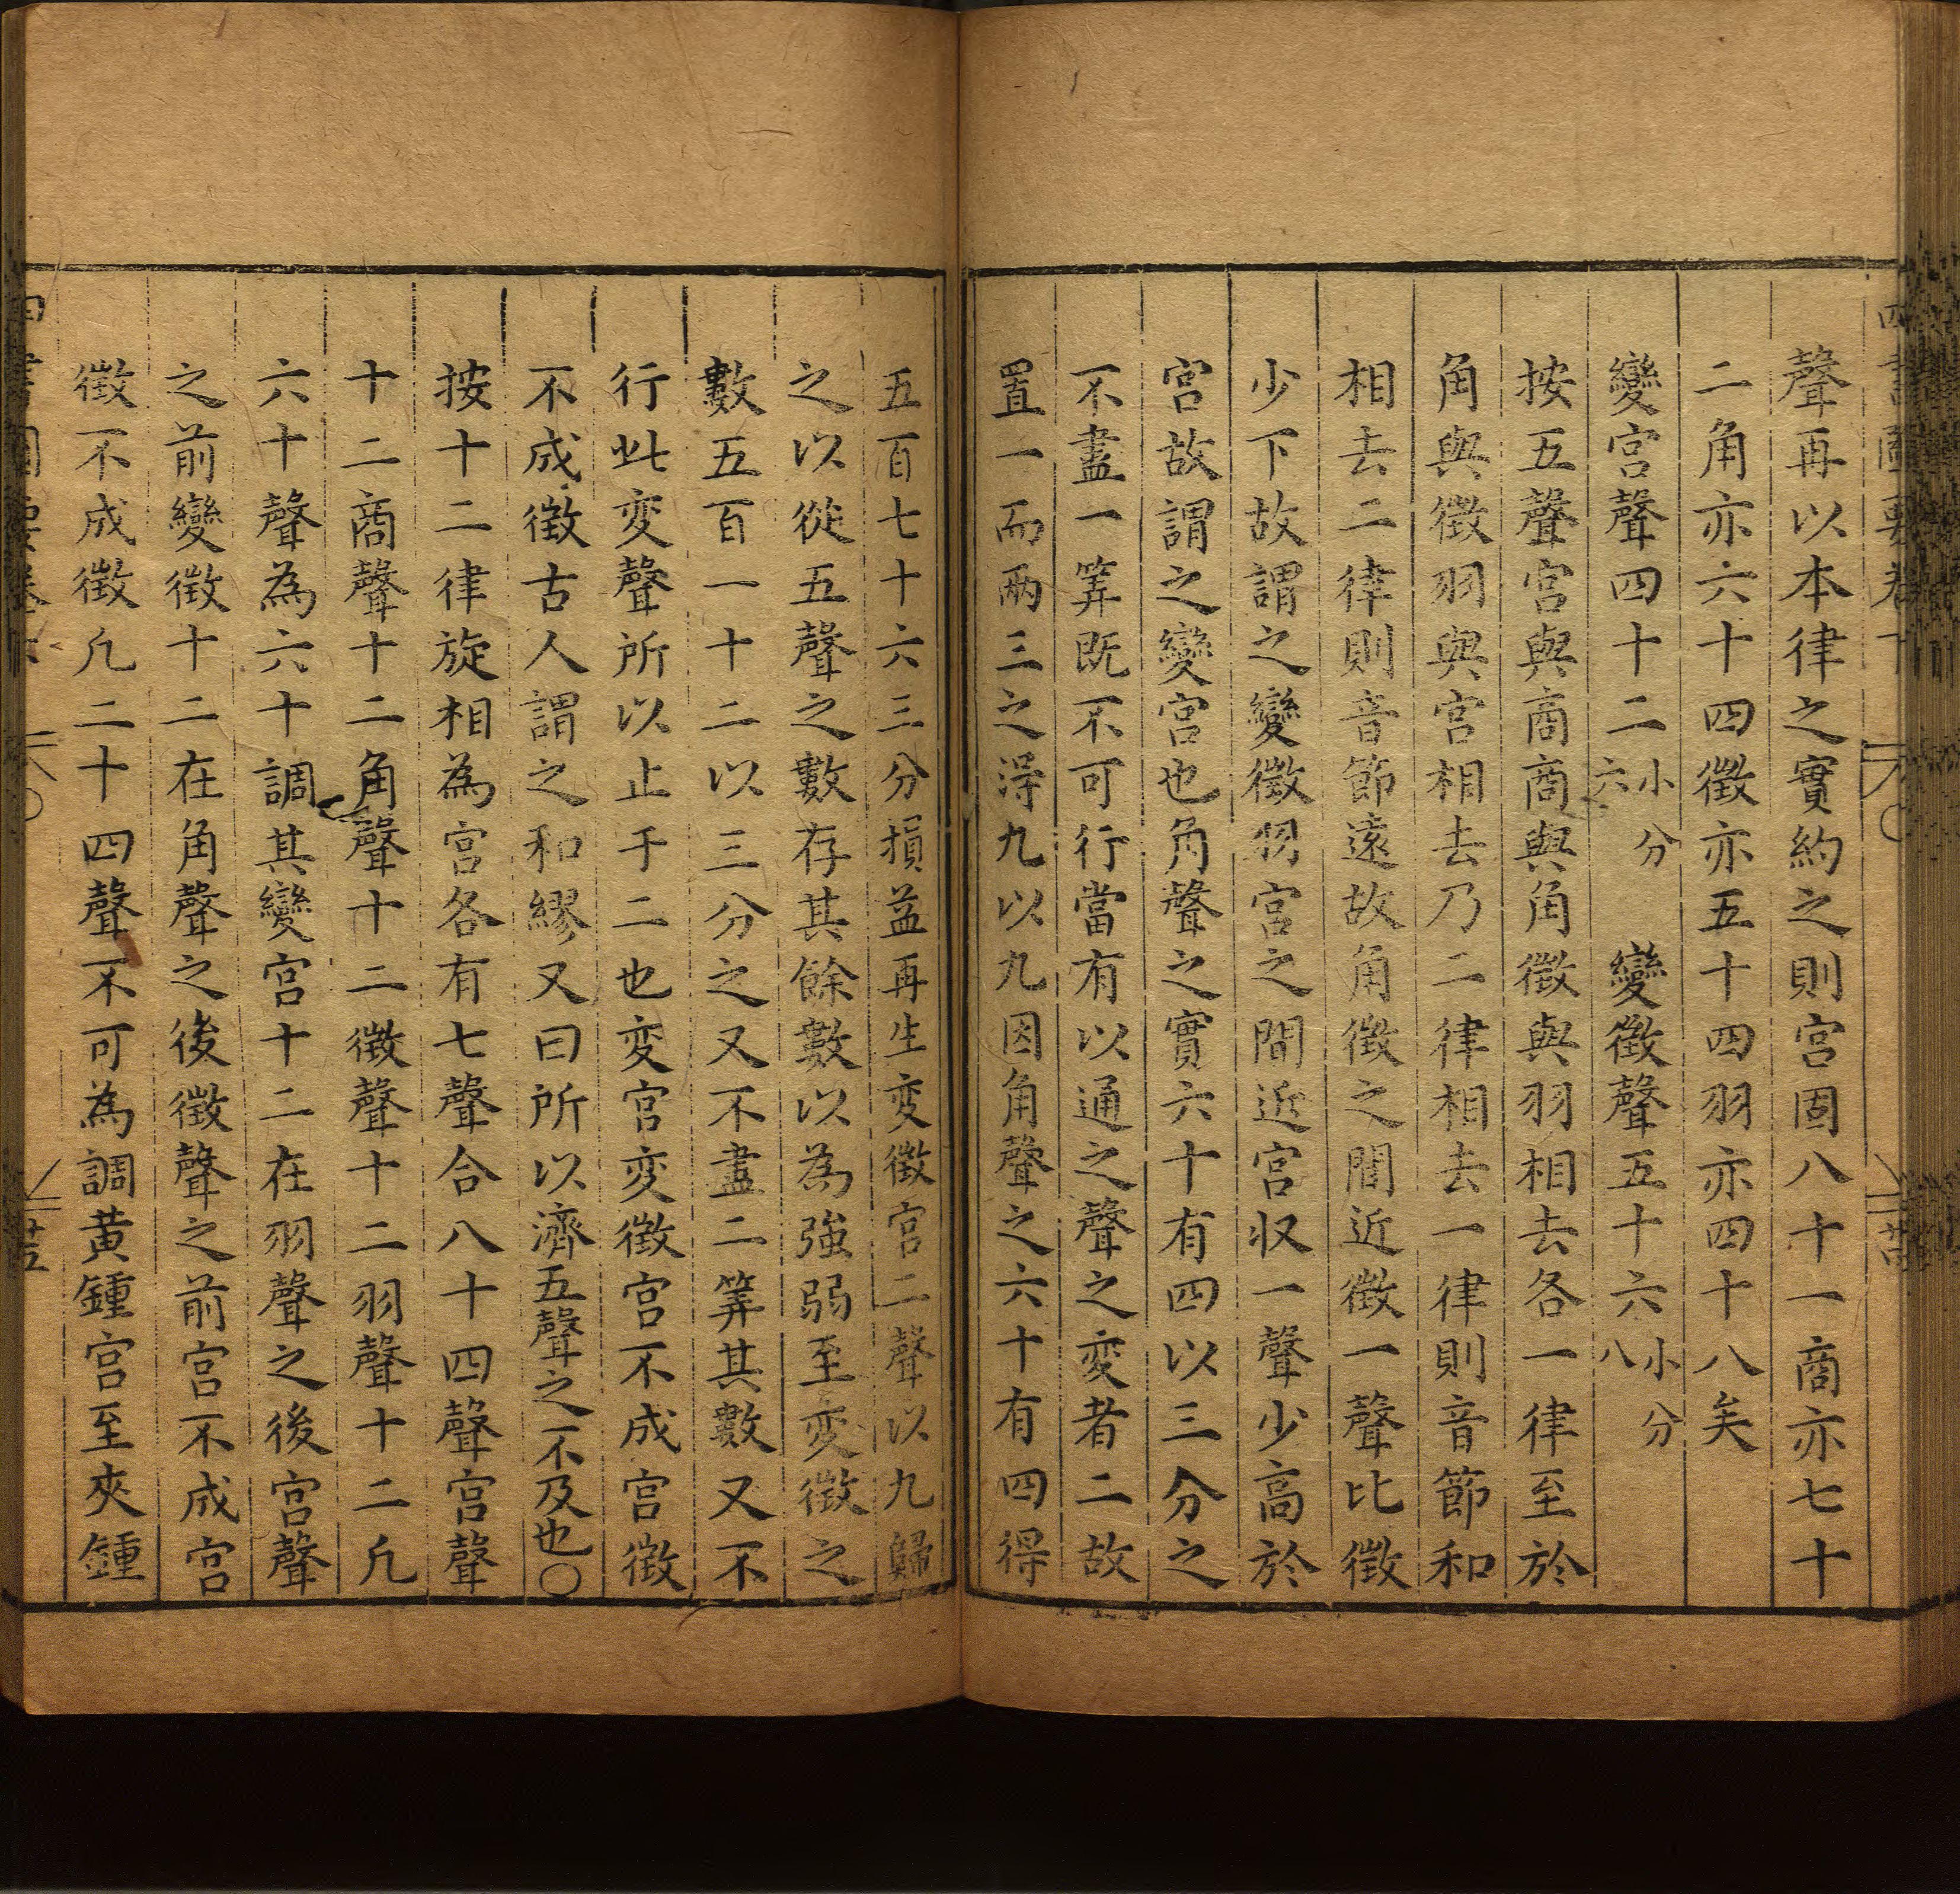 聲再以本律之實約之則宮固八十一商亦七十
二角亦六十四徵亦五十四羽亦四十八矣
變宮聲四十二小分六 變徵聲五十六小分八
按五聲宮與商商與角徵與羽相去各一律至於
角與徵羽與宮相去乃二律相去一律則音節和
相去二律則音節遠故角徵之間近徵一聲比徵
少下故謂之變徵羽宮之間近宮収一聲少高於
宮故謂之變宮也角聲之實六十有四以三分之
不盡一筭既不可行當有以通之聲之変者二故
置一而兩三之淂九以九因角聲之六十有四得
五百七十六三分損益再生変徵宮二聲以九歸
之以從五聲之數存其餘數以為強弱至変徵之
數五百一十二以三分之又不盡二筭其數又不
行此変聲所以止于二也変宮変徵宮不成宮徵
不成徵古人謂之和繆又曰所以濟五聲之不及也○
按十二律旋相為宮各有七聲合八十四聲宮聲
十二商聲十二角聲十二徵聲十二羽聲十二凡
六十聲為六十調其變宮十二在羽聲之後宮聲
之前變徵十二在角聲之後徵聲之前宮不成宮
徵不成徵凡二十四聲不可為調黃鍾宮至夾鍾